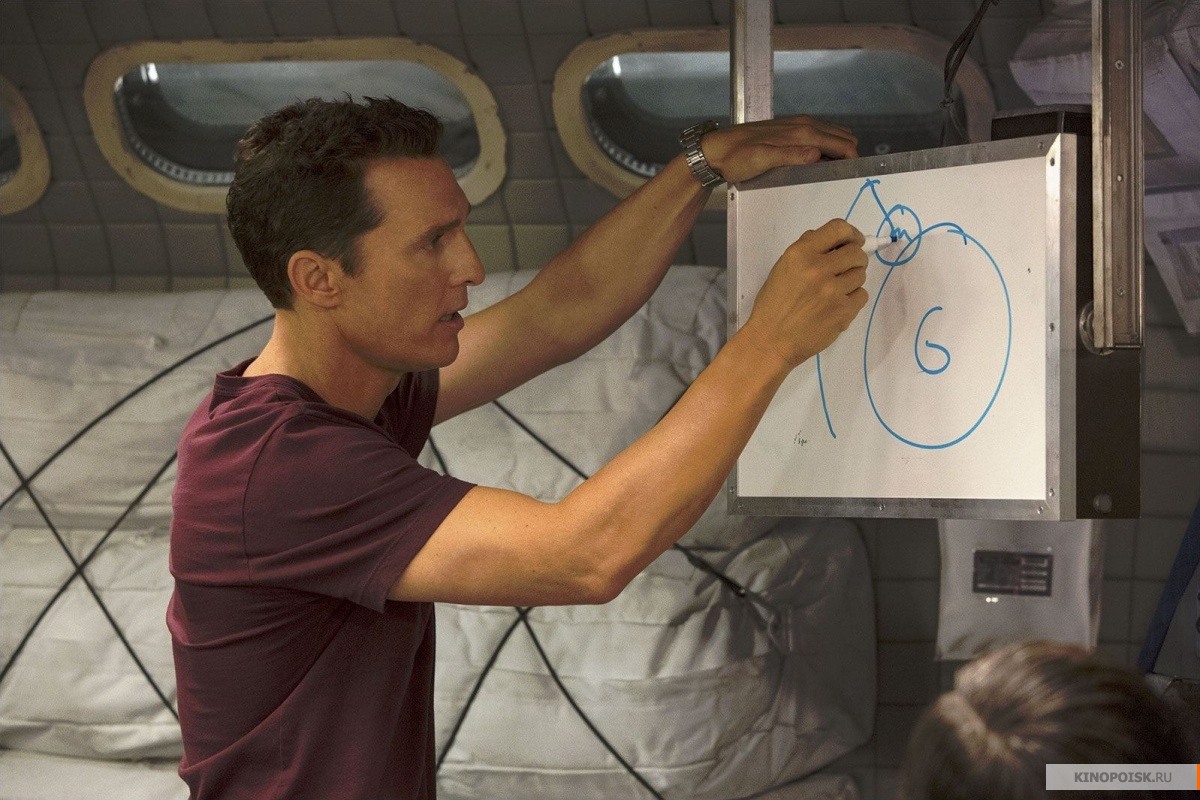 m
G
KINOPOISK.RU